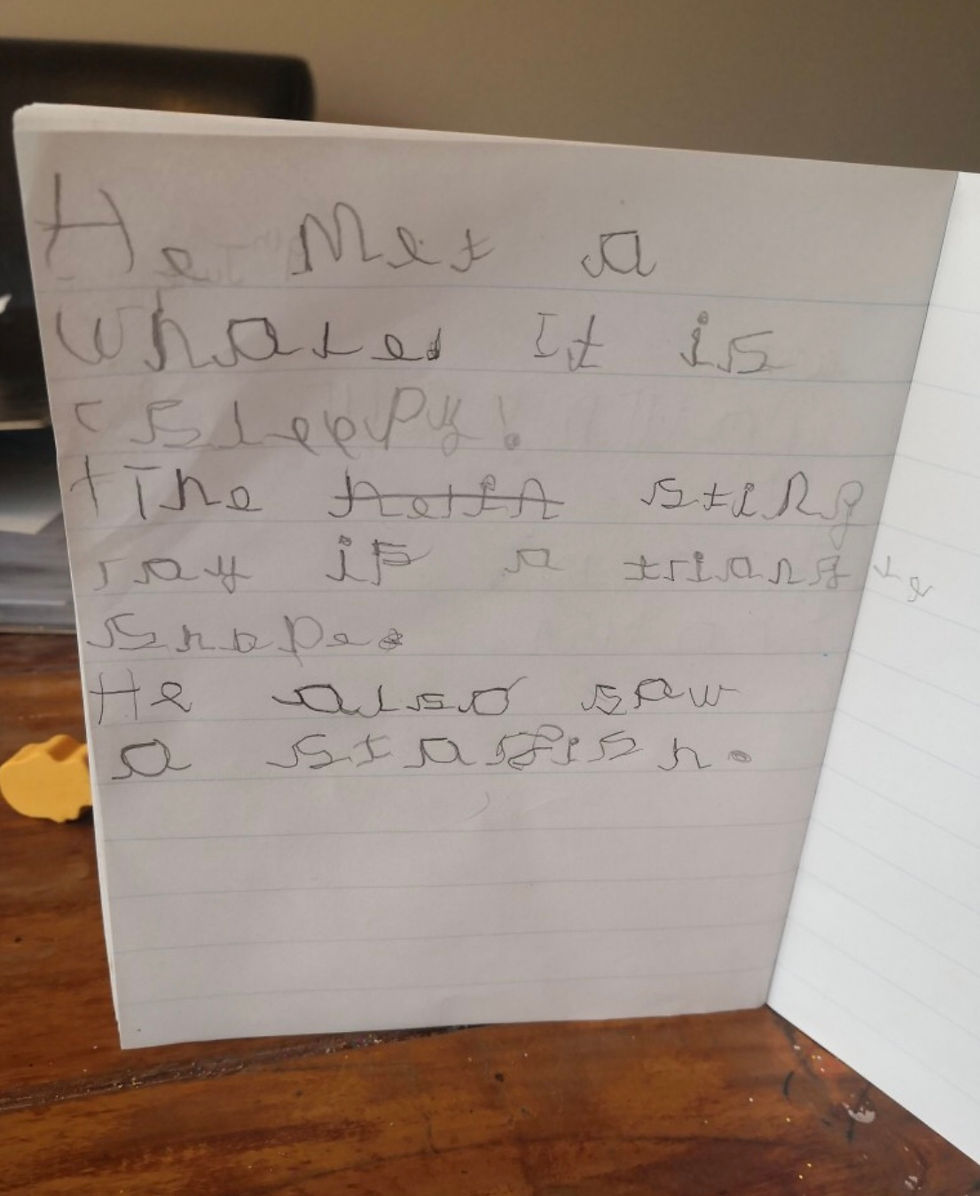 He Met a
Whale. It is
sleepy!
The sting
ray is a triangle
shape.
He also saw
a stasfish.